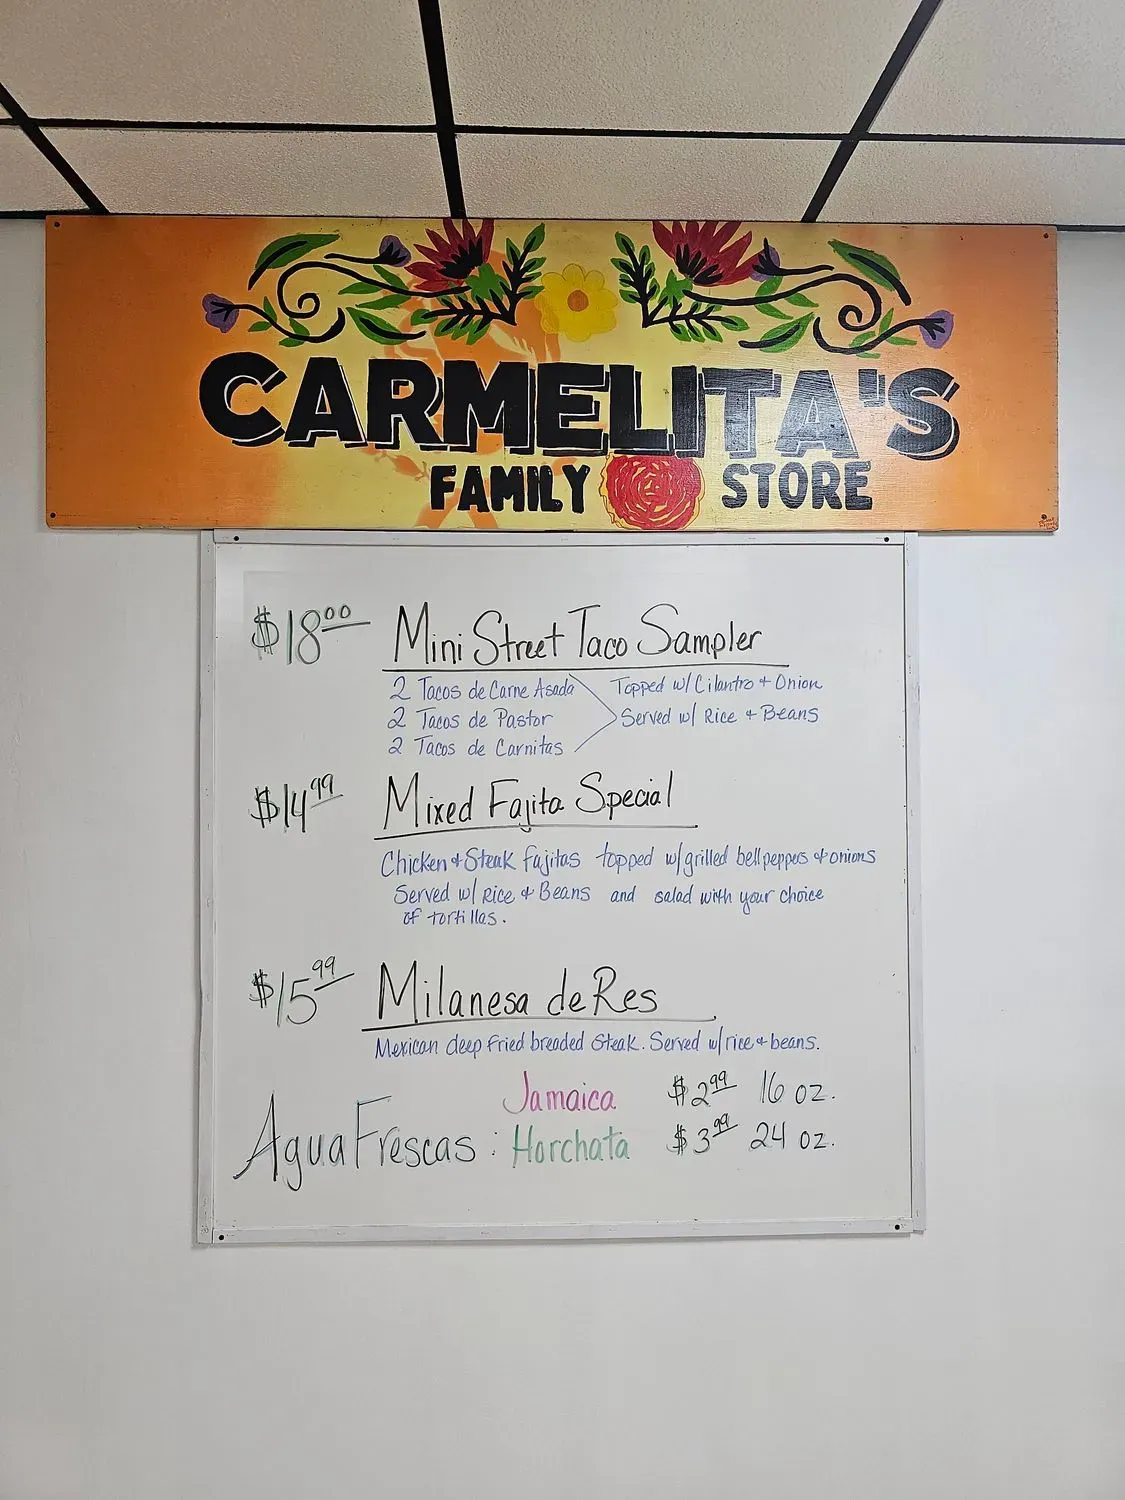 CARMELITA'S
FAMILY STORE
$18.00 Mini Street Taco Sampler
2 Tacos de Carne Asada Topped w/ Cilantro + Onion
2 Tacos de Pastor Served w/ Rice + Beans
2 Tacos de Carnitas
$14.99 Mixed Fajita Special
Chicken + Steak Fajitas topped w/grilled bell peppers + onions
Served w/ Rice + Beans and salad with your choice
of tortillas.
$15.99 Milanesa de Res
Mexican deep fried breaded Steak. Served w/rice + beans.
Jamaica $2.99 16 oz.
Agua Frescas: Horchata $3.99 24 oz.